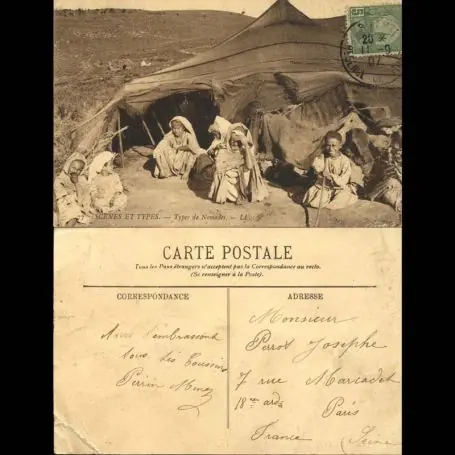 5
25 
11 -9
07
SCÈNES ET TYPES. — Types de Nomades. — LL.
CARTE POSTALE
Tous les Pays étrangers n'acceptent pas la Correspondance au recto.
(Se renseigner à la Poste).
CORRESPONDANCE
l'embrassent
tous, les Cousins
ADRESSE
Monsieur
Perrot Josephe
7 rue Marcadet
18me ardt
Paris
France
Seine